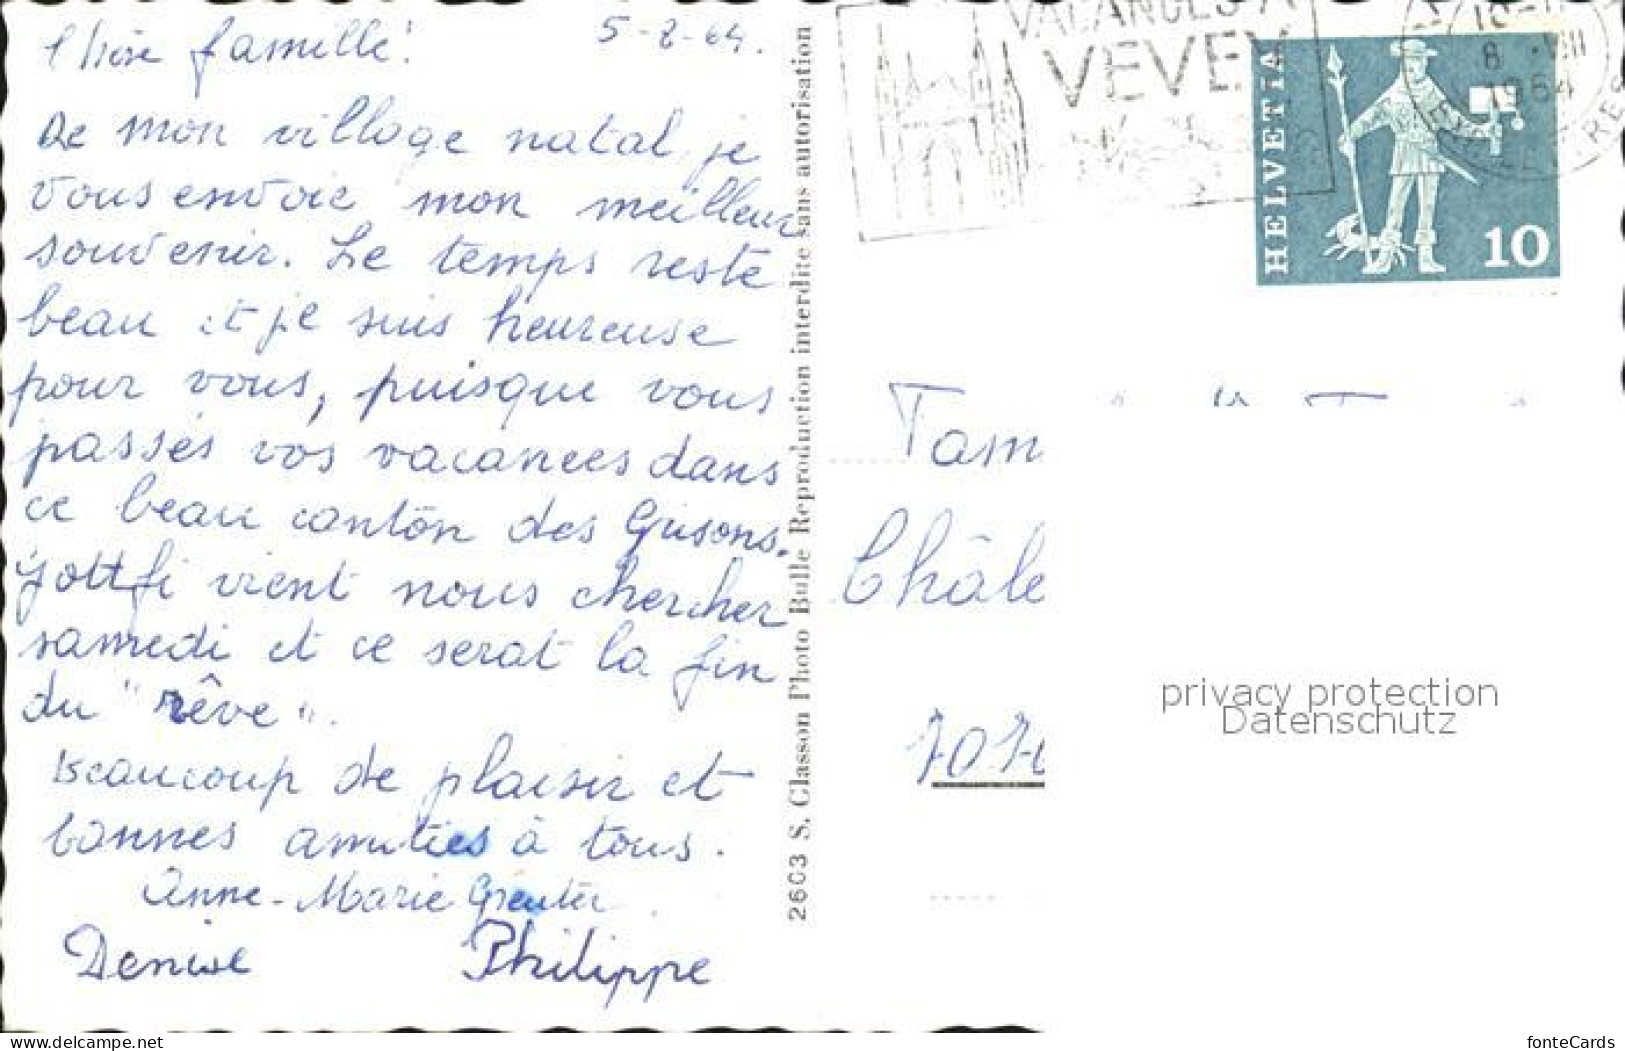 Chère famille! 5-8-64.
De mon village natal, je
vous envoie mon meilleur
souvenir. Le temps reste
beau et je suis heureuse
pour vous, puisque vous
passés vos vacances dans
ce beau canton des Grisons.
Gottfi vient nous chercher
samedi et ce serat la fin
du "rêve".
Beaucoup de plaisir et
bonnes amitiés à tous.
Anne-Marie Greuter
Denise Philippe
2603 S. Classon Photo Bulle Reproduction interdite sans autorisation
VACANCES À
VEVEY
8 VIII
1964
HELVETIA
10
Fam
Châle
privacy protection
Datenschutz
delcampe.net
fonteCards